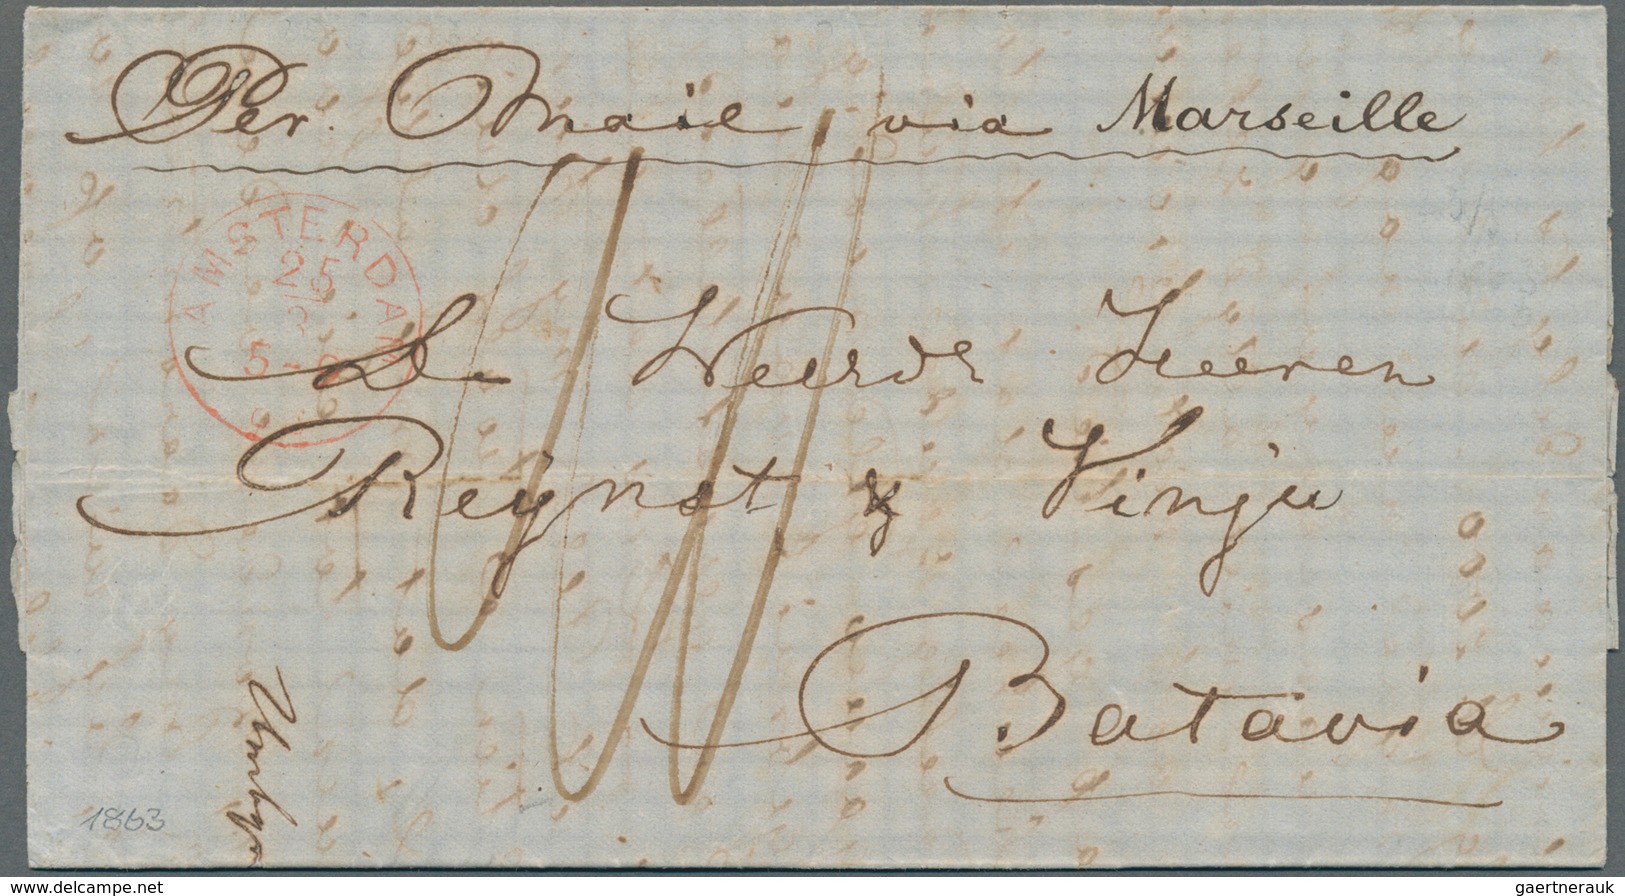 Per Mail via Marseille
AMSTERDAM
25
De Weerde Heeren
Reijnst & Vinju
Batavia
1863
www.delcampe.net
gaertnerauk